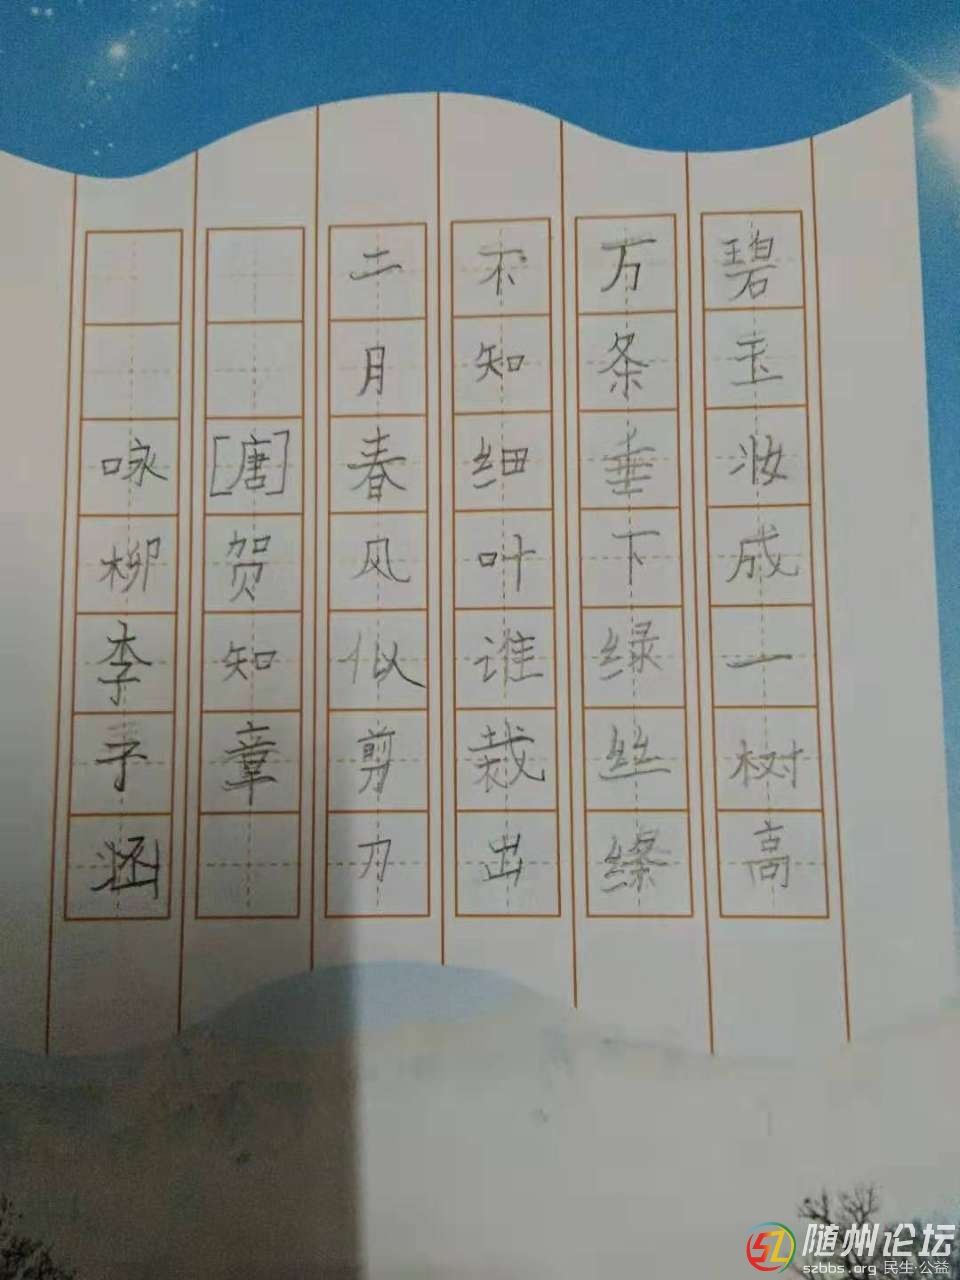 碧玉妆成一树高
万条垂下绿丝绦
不知细叶谁裁出
二月春风似剪刀
[唐]贺知章
咏柳李子涵
随州论坛
szbbs.org 民生·公益